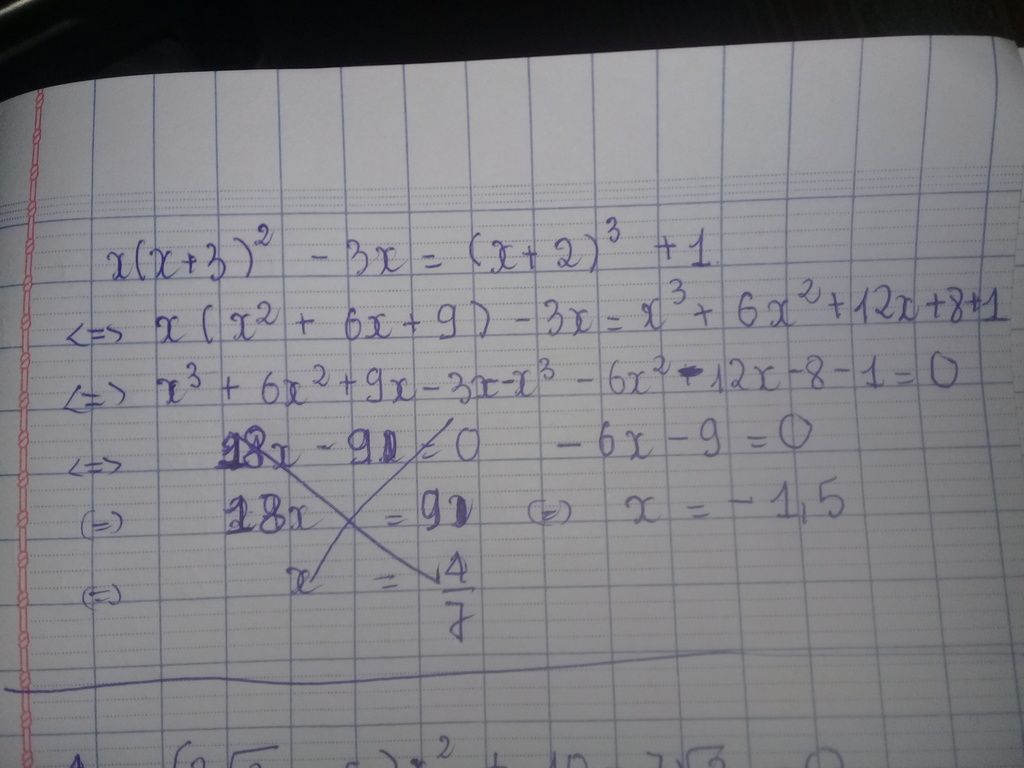 x(x+3)² - 3x = (x+2)³ +1
<=> x(x² + 6x+9) - 3x = x³ + 6x² +12x+8+1
<=> x³ + 6x² +9x - 3x - x³ - 6x² - 12x - 8 - 1 = 0
<=> = 0 - 6x - 9 = 0
(=) = (=) x = - 1,5
(=) x = 4/7